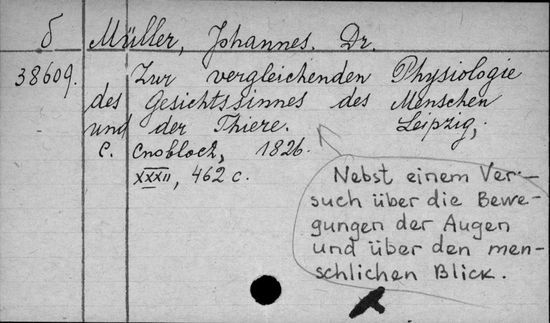 б Müller, Johannes. Dr.
38609. Zur vergleichenden Physiologie
des Gesichtssinnes des Menschen
und der Thiere. Leipzig,
C. Cnobloch, 1826.
XXXII, 462 c.
Nebst einem Ver-
such über die Bewe-
gungen der Augen
und über den men-
schlichen Blick.